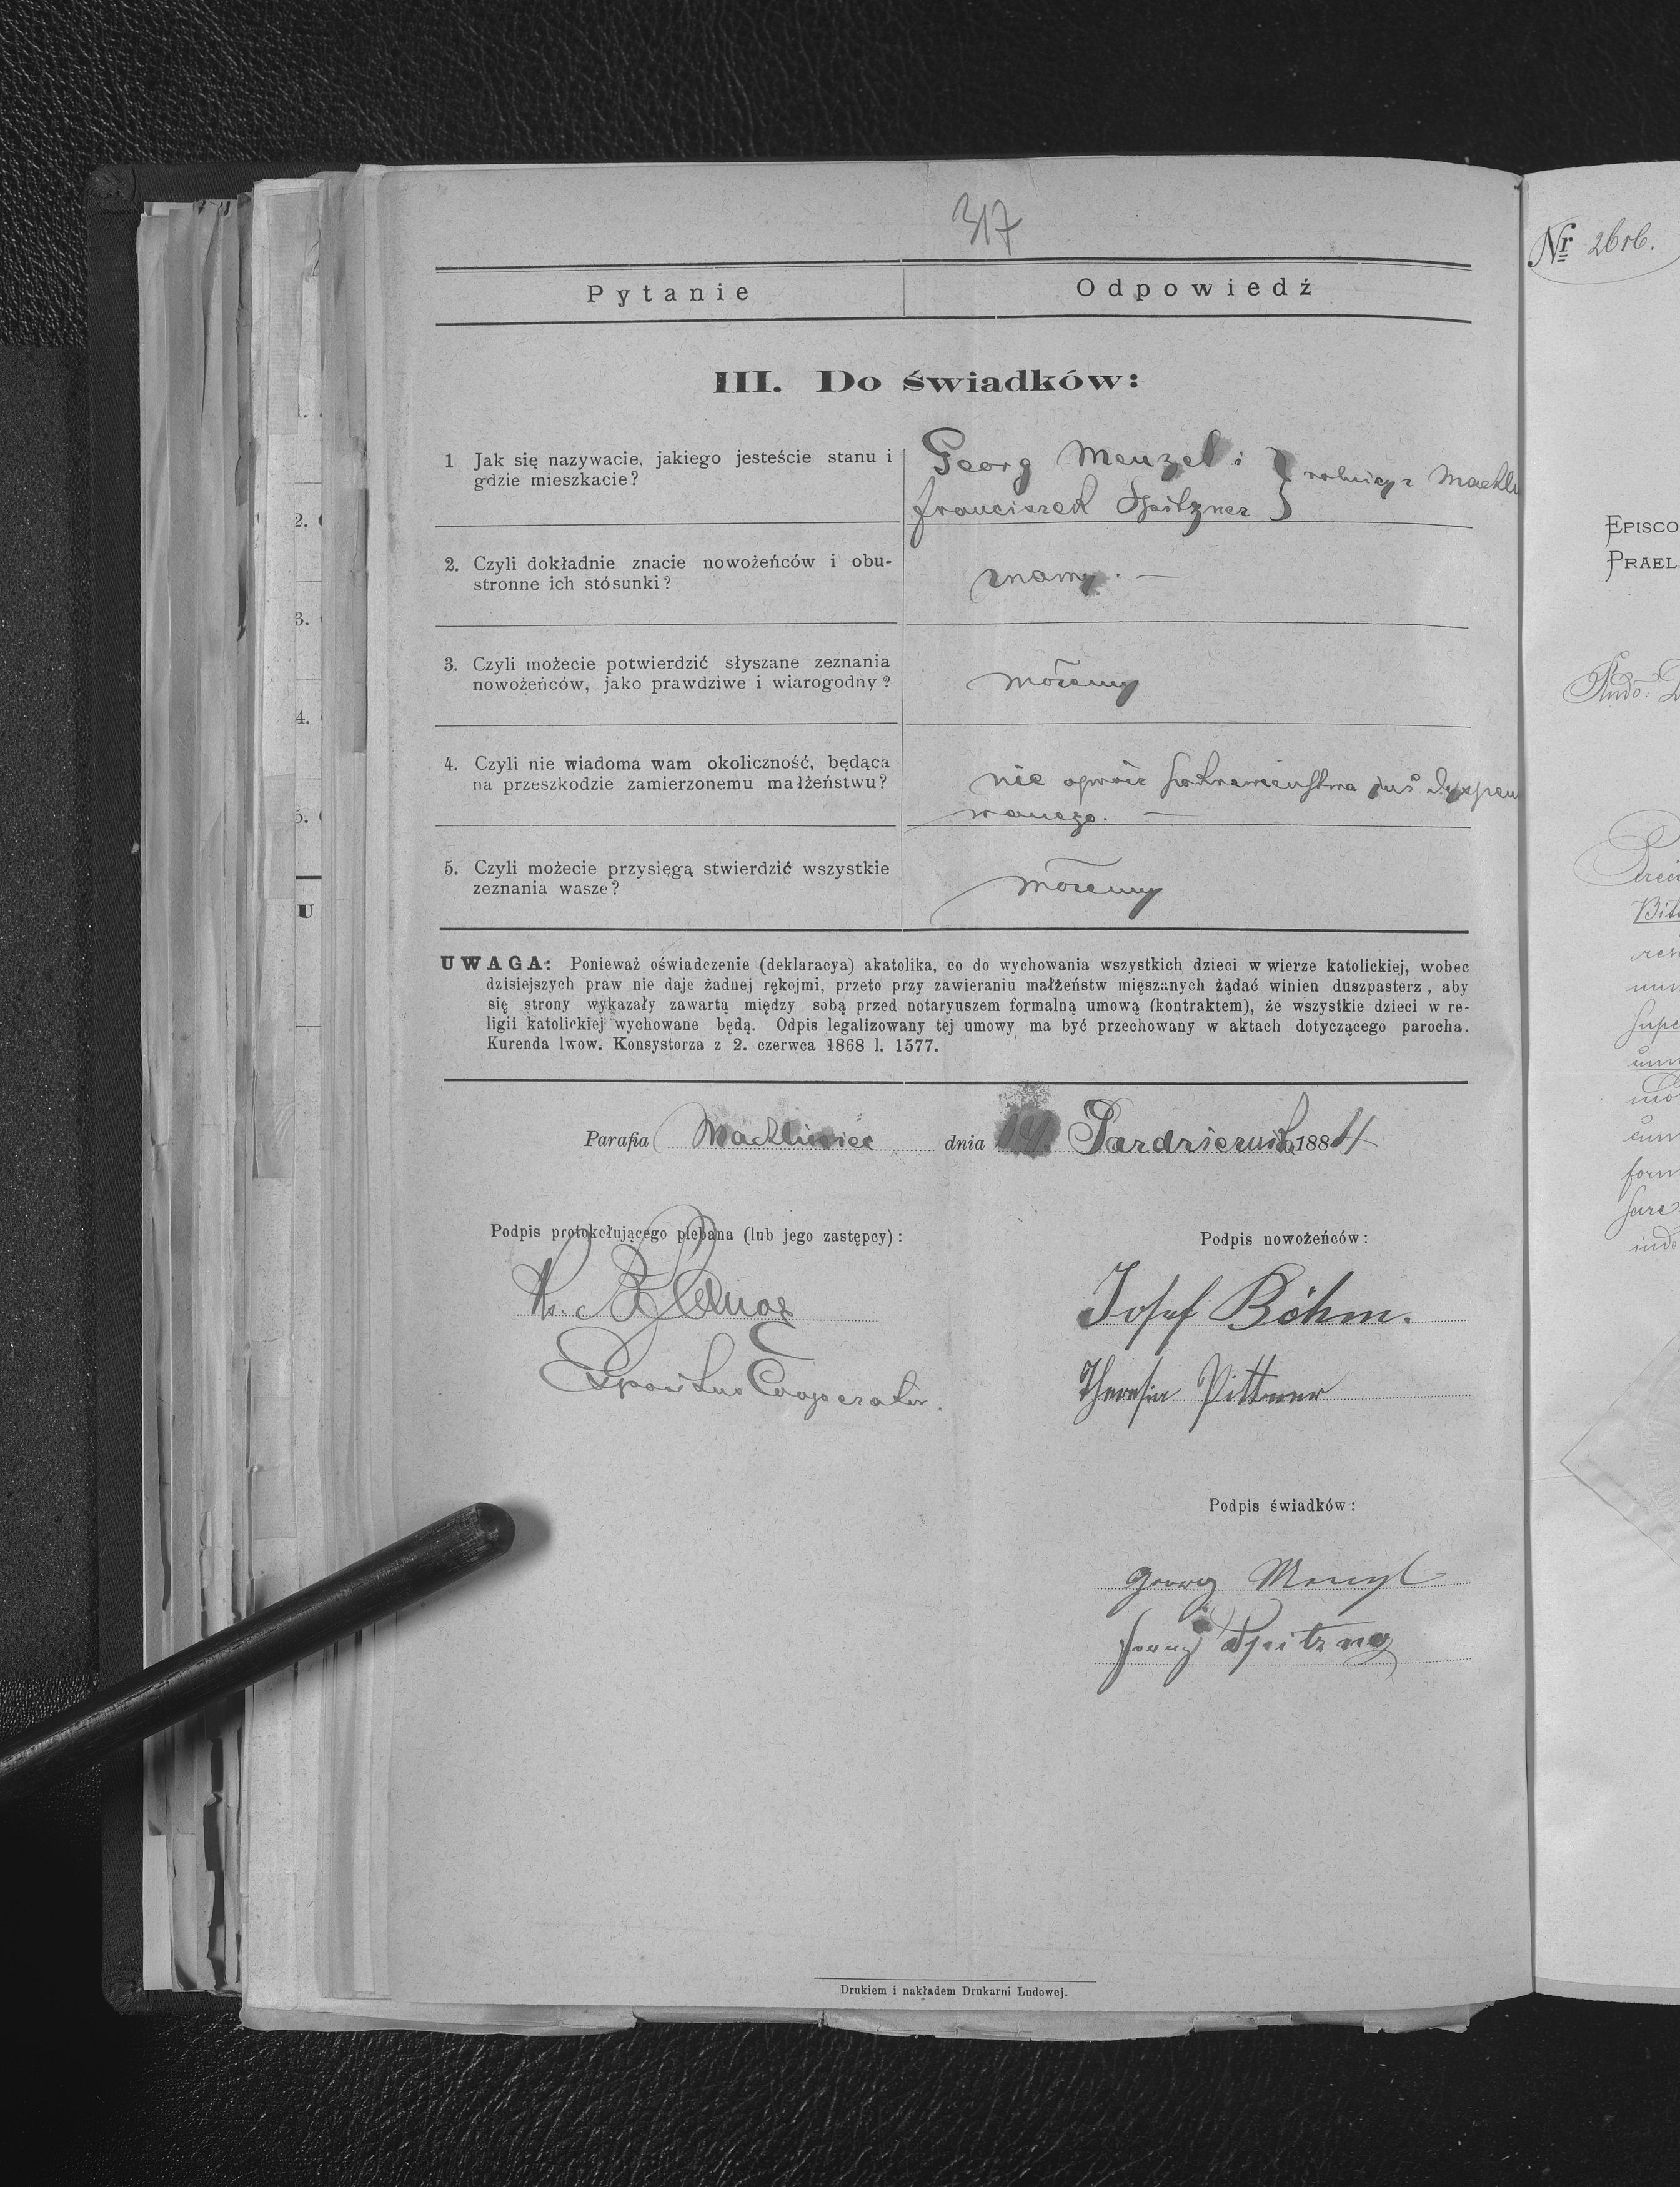 317
Pytanie Odpowiedź
III. Do świadków:
1 Jak się nazywacie, jakiego jesteście stanu i
gdzie mieszkacie?
Georg Menzel i
Franciszek Spitzner } rolnicy z Machli
2. Czyli dokładnie znacie nowożeńców i obu-
stronne ich stósunki?
znamy. —
3. Czyli możecie potwierdzić słyszane zeznania
nowożeńców, jako prawdziwe i wiarogodny?
możemy
4. Czyli nie wiadoma wam okoliczność, będąca
na przeszkodzie zamierzonemu małżeństwu?
nie oprócz pokrewieństwa już dyspen
wanego. —
5. Czyli możecie przysięgą stwierdzić wszystkie
zeznania wasze?
możemy
UWAGA: Ponieważ oświadczenie (deklaracya) akatolika, co do wychowania wszystkich dzieci w wierze katolickiej, wobec
dzisiejszych praw nie daje żadnej rękojmi, przeto przy zawieraniu małżeństw mięszanych żądać winien duszpasterz, aby
się strony wykazały zawartą między sobą przed notaryuszem formalną umową (kontraktem), że wszystkie dzieci w re-
ligii katolickiej wychowane będą. Odpis legalizowany tej umowy ma być przechowany w aktach dotyczącego parocha.
Kurenda lwow. Konsystorza z 2. czerwca 1868 l. 1577.
Parafia Machliniec dnia 14. Pazdziernika 1884
Podpis protokołującego plebana (lub jego zastępcy):
Expositus Cooperator.
Podpis nowożeńców:
Josef Böhm.
Theresia Pittner
Podpis świadków:
Georg Menzel
Franz Spitzner
Drukiem i nakładem Drukarni Ludowej.
Nr 2616.
EPISCO
PRAEL